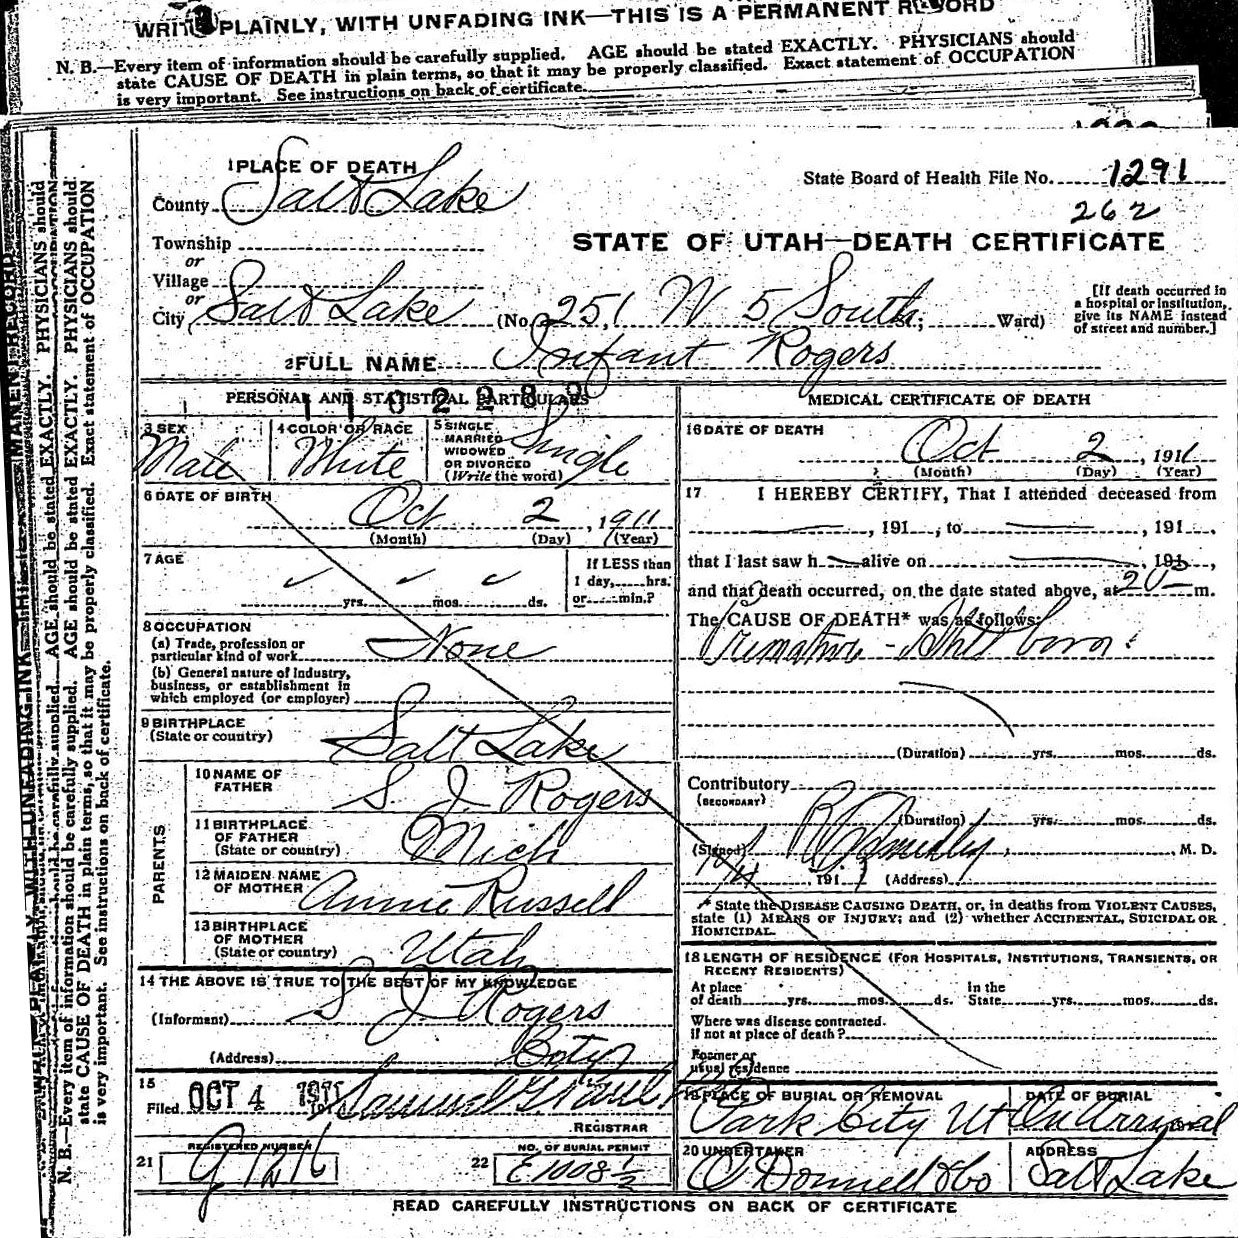 WRITE PLAINLY, WITH UNFADING INK—THIS IS A PERMANENT RECORD
N. B.—Every item of information should be carefully supplied. AGE should be stated EXACTLY. PHYSICIANS should
state CAUSE OF DEATH in plain terms, so that it may be properly classified. Exact statement of OCCUPATION
is very important. See instructions on back of certificate.
1 PLACE OF DEATH
State Board of Health File No. 1291
262
County Salt Lake
STATE OF UTAH—DEATH CERTIFICATE
Township
or
Village
or
City Salt Lake (No. 251 W 5 South; Ward)
[If death occurred in
a hospital or institution,
give its NAME instead
of street and number.]
2 FULL NAME Infant Rogers
PERSONAL AND STATISTICAL PARTICULARS
3 SEX Male
4 COLOR OR RACE White
5 SINGLE
MARRIED
WIDOWED
OR DIVORCED
(Write the word) Single
6 DATE OF BIRTH
Oct 2, 1911
(Month) (Day) (Year)
7 AGE
yrs. mos. ds.
If LESS than
1 day, hrs.
or min.?
8 OCCUPATION
(a) Trade, profession or
particular kind of work None
(b) General nature of Industry,
business, or establishment in
which employed (or employer)
9 BIRTHPLACE
(State or country) Salt Lake
PARENTS
10 NAME OF
FATHER S. J. Rogers
11 BIRTHPLACE
OF FATHER
(State or country) Mich
12 MAIDEN NAME
OF MOTHER Annie Russell
13 BIRTHPLACE
OF MOTHER
(State or country) Utah
14 THE ABOVE IS TRUE TO THE BEST OF MY KNOWLEDGE
(Informant) S J Rogers
(Address)
15
Filed OCT 4 1911 Samuel G.
REGISTRAR
REGISTERED NUMBER
21
NO. OF BURIAL PERMIT
22 E1008 1/2
MEDICAL CERTIFICATE OF DEATH
16 DATE OF DEATH
Oct 2, 1911
(Month) (Day) (Year)
17 I HEREBY CERTIFY, That I attended deceased from
, 191 , to , 191 ,
that I last saw h alive on , 191 ,
and that death occurred, on the date stated above, at m.
The CAUSE OF DEATH* was as follows:
Premature - Still born.
(Duration) yrs. mos. ds.
Contributory
(SECONDARY)
(Duration) yrs. mos. ds.
(Signed) , M. D.
, 191 (Address)
* State the DISEASE CAUSING DEATH, or, in deaths from VIOLENT CAUSES,
state (1) MEANS OF INJURY; and (2) whether ACCIDENTAL, SUICIDAL OR
HOMICIDAL.
18 LENGTH OF RESIDENCE (FOR HOSPITALS, INSTITUTIONS, TRANSIENTS, OR
RECENT RESIDENTS)
At place
of death yrs. mos. ds.
In the
State yrs. mos. ds.
Where was disease contracted.
If not at place of death?
Former or
usual residence
19 PLACE OF BURIAL OR REMOVAL
Park City Ut
DATE OF BURIAL
On Arrival
20 UNDERTAKER
O'Donnell & Co
ADDRESS
Salt Lake
READ CAREFULLY INSTRUCTIONS ON BACK OF CERTIFICATE
N. B.—Every item of information should be carefully supplied. AGE should be stated EXACTLY. PHYSICIANS should
state CAUSE OF DEATH in plain terms, so that it may be properly classified. Exact statement of OCCUPATION
is very important. See instructions on back of certificate.